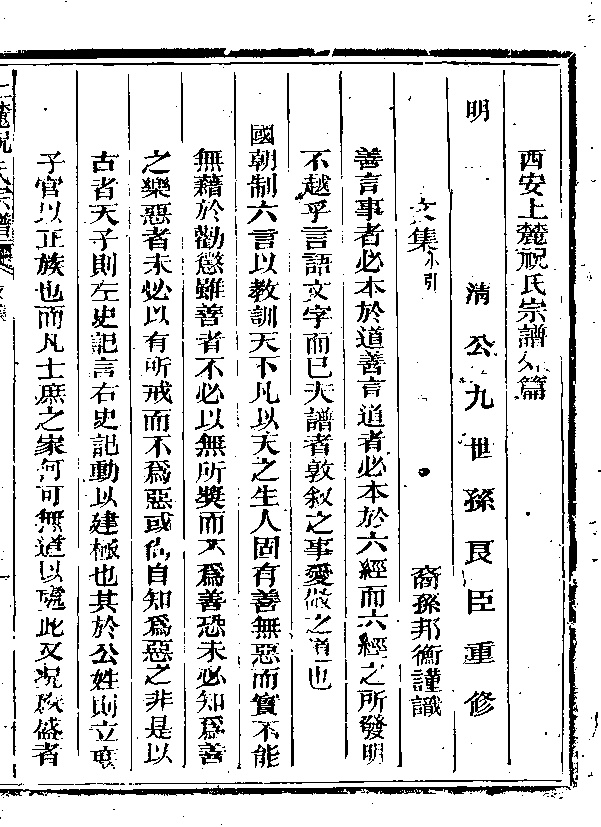 西安上麓祝氏宗譜外篇
明 清公九世孫良臣重修
文集小引 裔孫邦衡謹識
善言事者必本於道善言道者必本於六經而六經之所發明
不越乎言語文字而已夫譜者敦叙之事愛敬之道也
國朝制六言以教訓天下凡以天之生人固有善無惡而實不能
無藉於勸懲雖善者不必以無所獎而不爲善恐未必知爲善
之樂惡者未必以有所戒而不爲惡或偽自知爲惡之非是以
古者天子則左史記言右史記動以建極也其於公姓則立宗
子官以正族也而凡士庶之家何可無道以處此又況族盛者
上麓祝氏宗譜 文集